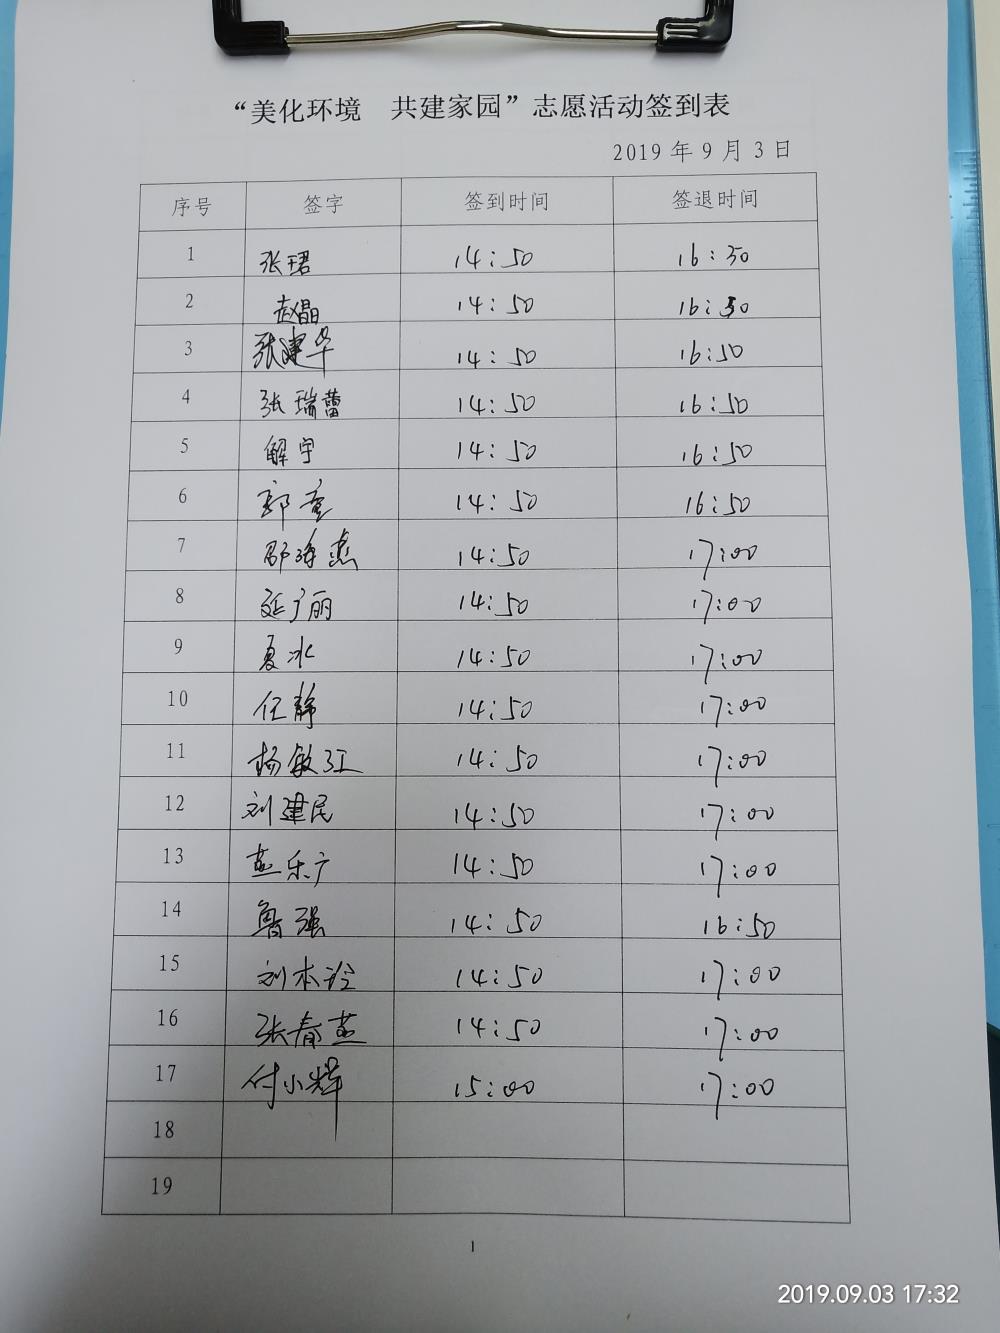 “美化环境 共建家园”志愿活动签到表
2019年9月3日
序号 签字 签到时间 签退时间
1 张珺 14:50 16:30
2 赵晶 14:50 16:30
3 张建华 14:50 16:50
4 张瑞蕾 14:50 16:50
5 解宇 14:50 16:50
6 郭童 14:50 16:50
7 邵海燕 14:50 17:00
8 延广丽 14:50 17:00
9 夏冰 14:50 17:00
10 任静 14:50 17:00
11 杨敏江 14:50 17:00
12 刘建民 14:50 17:00
13 燕乐广 14:50 17:00
14 鲁强 14:50 16:50
15 刘本玲 14:50 17:00
16 张春燕 14:50 17:00
17 付小辉 15:00 17:00
18
19
1
2019.09.03 17:32